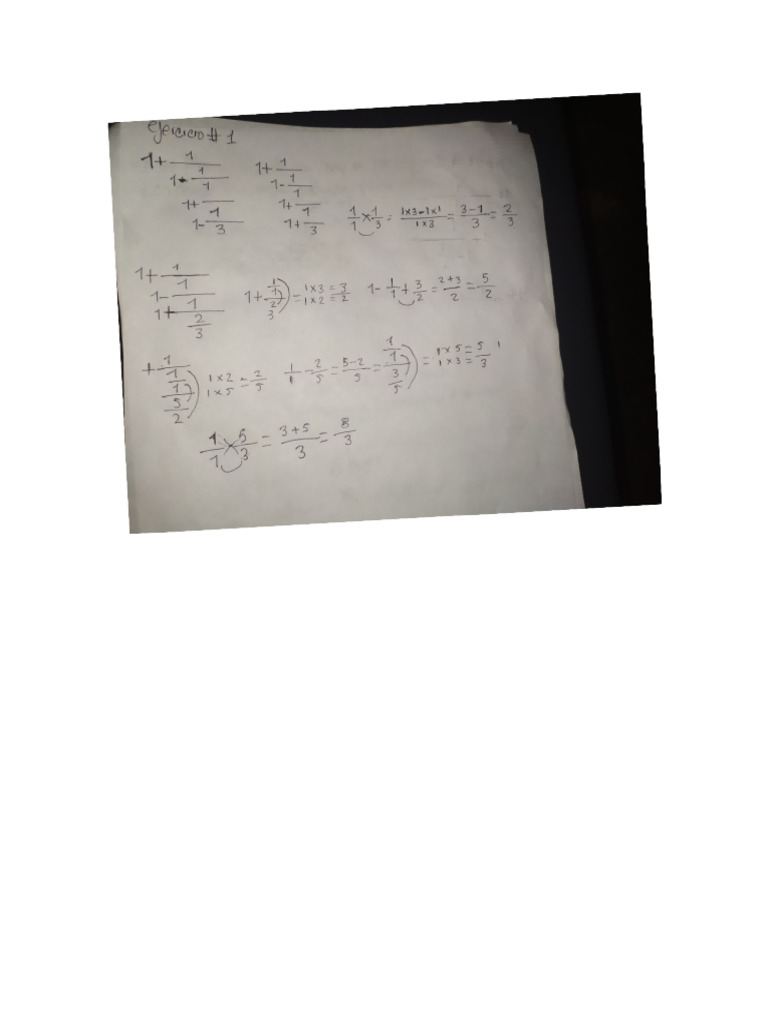 Ejercicio # 1
1+ 1 1+ 1
1- 1 1- 1
1 1
1+ 1 1+ 1
1- 3 1+ 3
1/1 x 1/3 = 1x3-1x1/1x3 = 3-1/3 = 2/3
1+ 1
1- 1
1+ 1
2/3
1+ 1/1/2/3 = 1x3/1x2 = 3/2 1- 1/1 + 3/2 = 2+3/2 = 5/2
+ 1/1/1/5/2 1x2/1x5 = 2/5 1/1 - 2/5 = 5-2/5 = 1/1/3/5 = 1x5/1x3 = 5/3
1/1 x 5/3 = 3+5/3 = 8/3